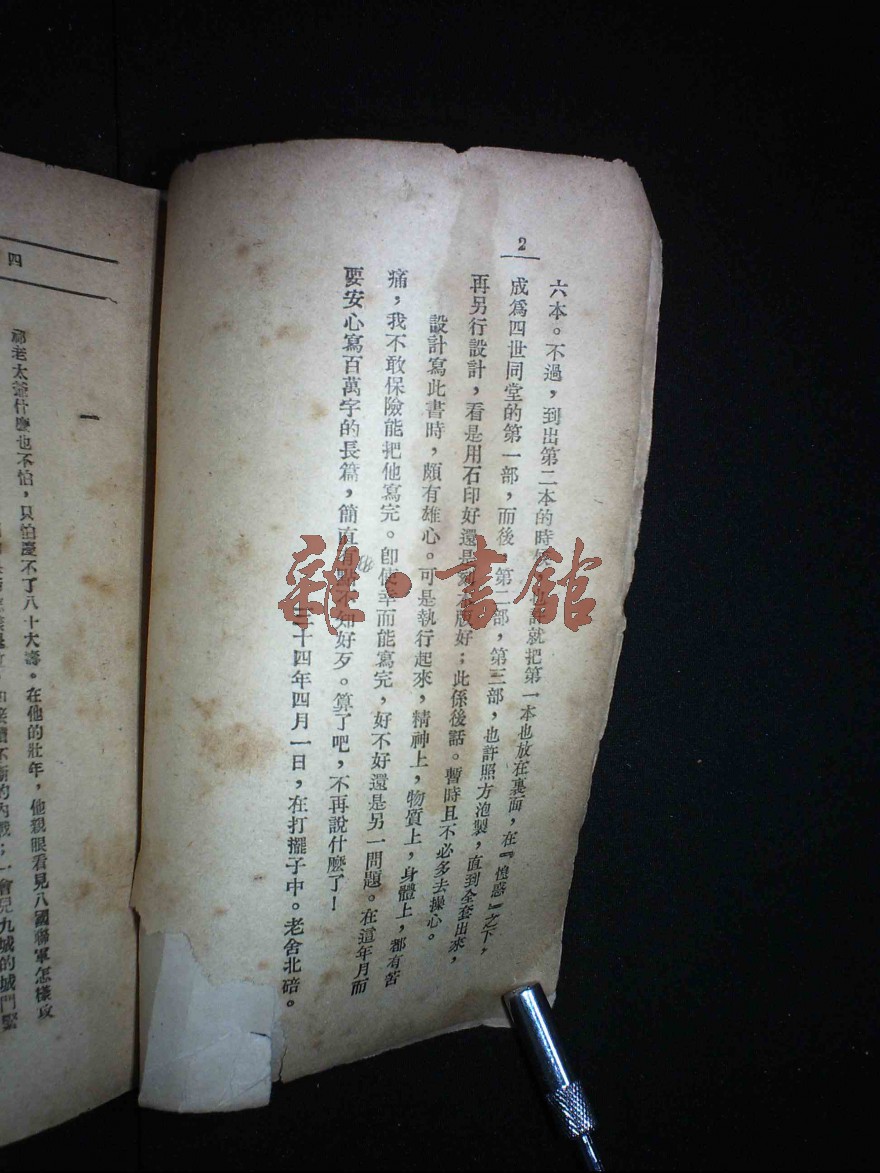 2
六本。不過，到出第二本的時候，也許就把第一本也放在裏面，在『惶惑』之下，
成爲四世同堂的第一部，而後，第二部，第三部，也許照方泡製，直到全套出來，
再另行設計，看是用石印好還是刻木版好；此係後話。暫時且不必多去操心。
設計寫此書時，頗有雄心。可是執行起來，精神上，物質上，身體上，都有苦
痛，我不敢保險能把他寫完。卽使幸而能寫完，好不好還是另一問題。在這年月而
要安心寫百萬字的長篇，簡直有點不知好歹。算了吧，不再說什麼了！
三十四年四月一日，在打擺子中。老舍北碚。
雜·書館
四
一
祁老太爺什麼也不怕，只怕慶不了八十大壽。在他的壯年，他親眼看見八國聯軍怎樣攻
接續不斷的內戰；一會兒九城的城門緊